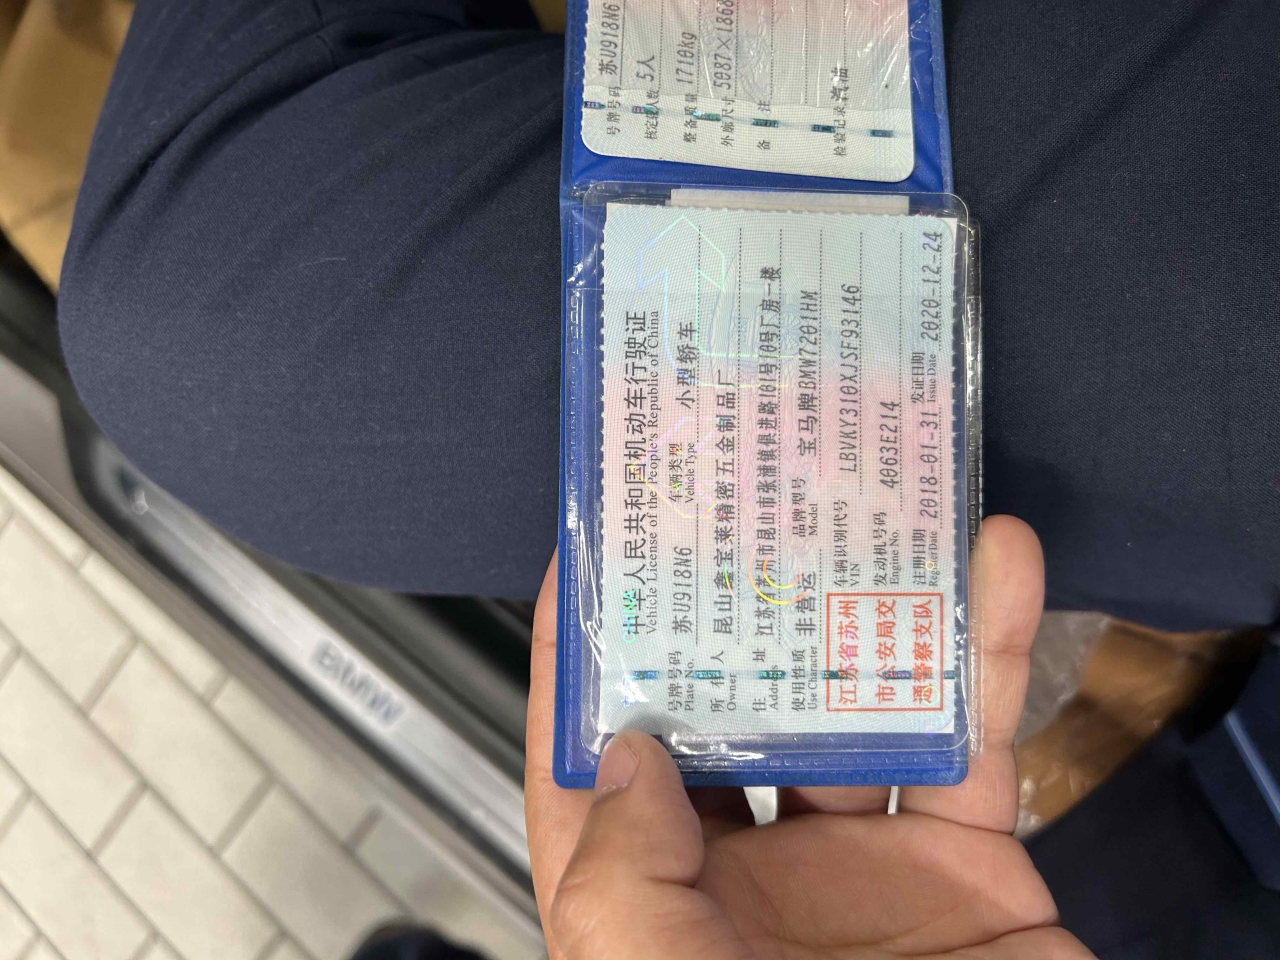 中华人民共和国机动车行驶证
Vehicle License of the People's Republic of China
号牌号码 苏U918N6 车辆类型 小型轿车
Plate No. Vehicle Type
所有人 昆山鑫宝莱精密五金制品厂
Owner
住址 江苏省苏州市昆山市张浦镇俱进路101号10号厂房一楼
Address
使用性质 非营运 品牌型号 宝马牌BMW7201HM
Use Character Model
江苏省苏州
市公安局交
通警察支队
车辆识别代号 LBVKY310XJSF93146
VIN
发动机号码 4063E214
Engine No.
注册日期 2018-01-31 发证日期 2020-12-24
Register Date Issue Date
号牌号码 苏U918N6
核定载人数 5人
整备质量 1710kg
外廓尺寸 5087×1868
备注
检验记录 汽油
BMW